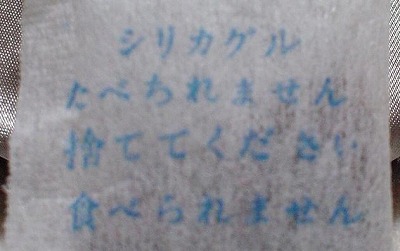 シリカゲル
たべられません
捨ててください
食べられません